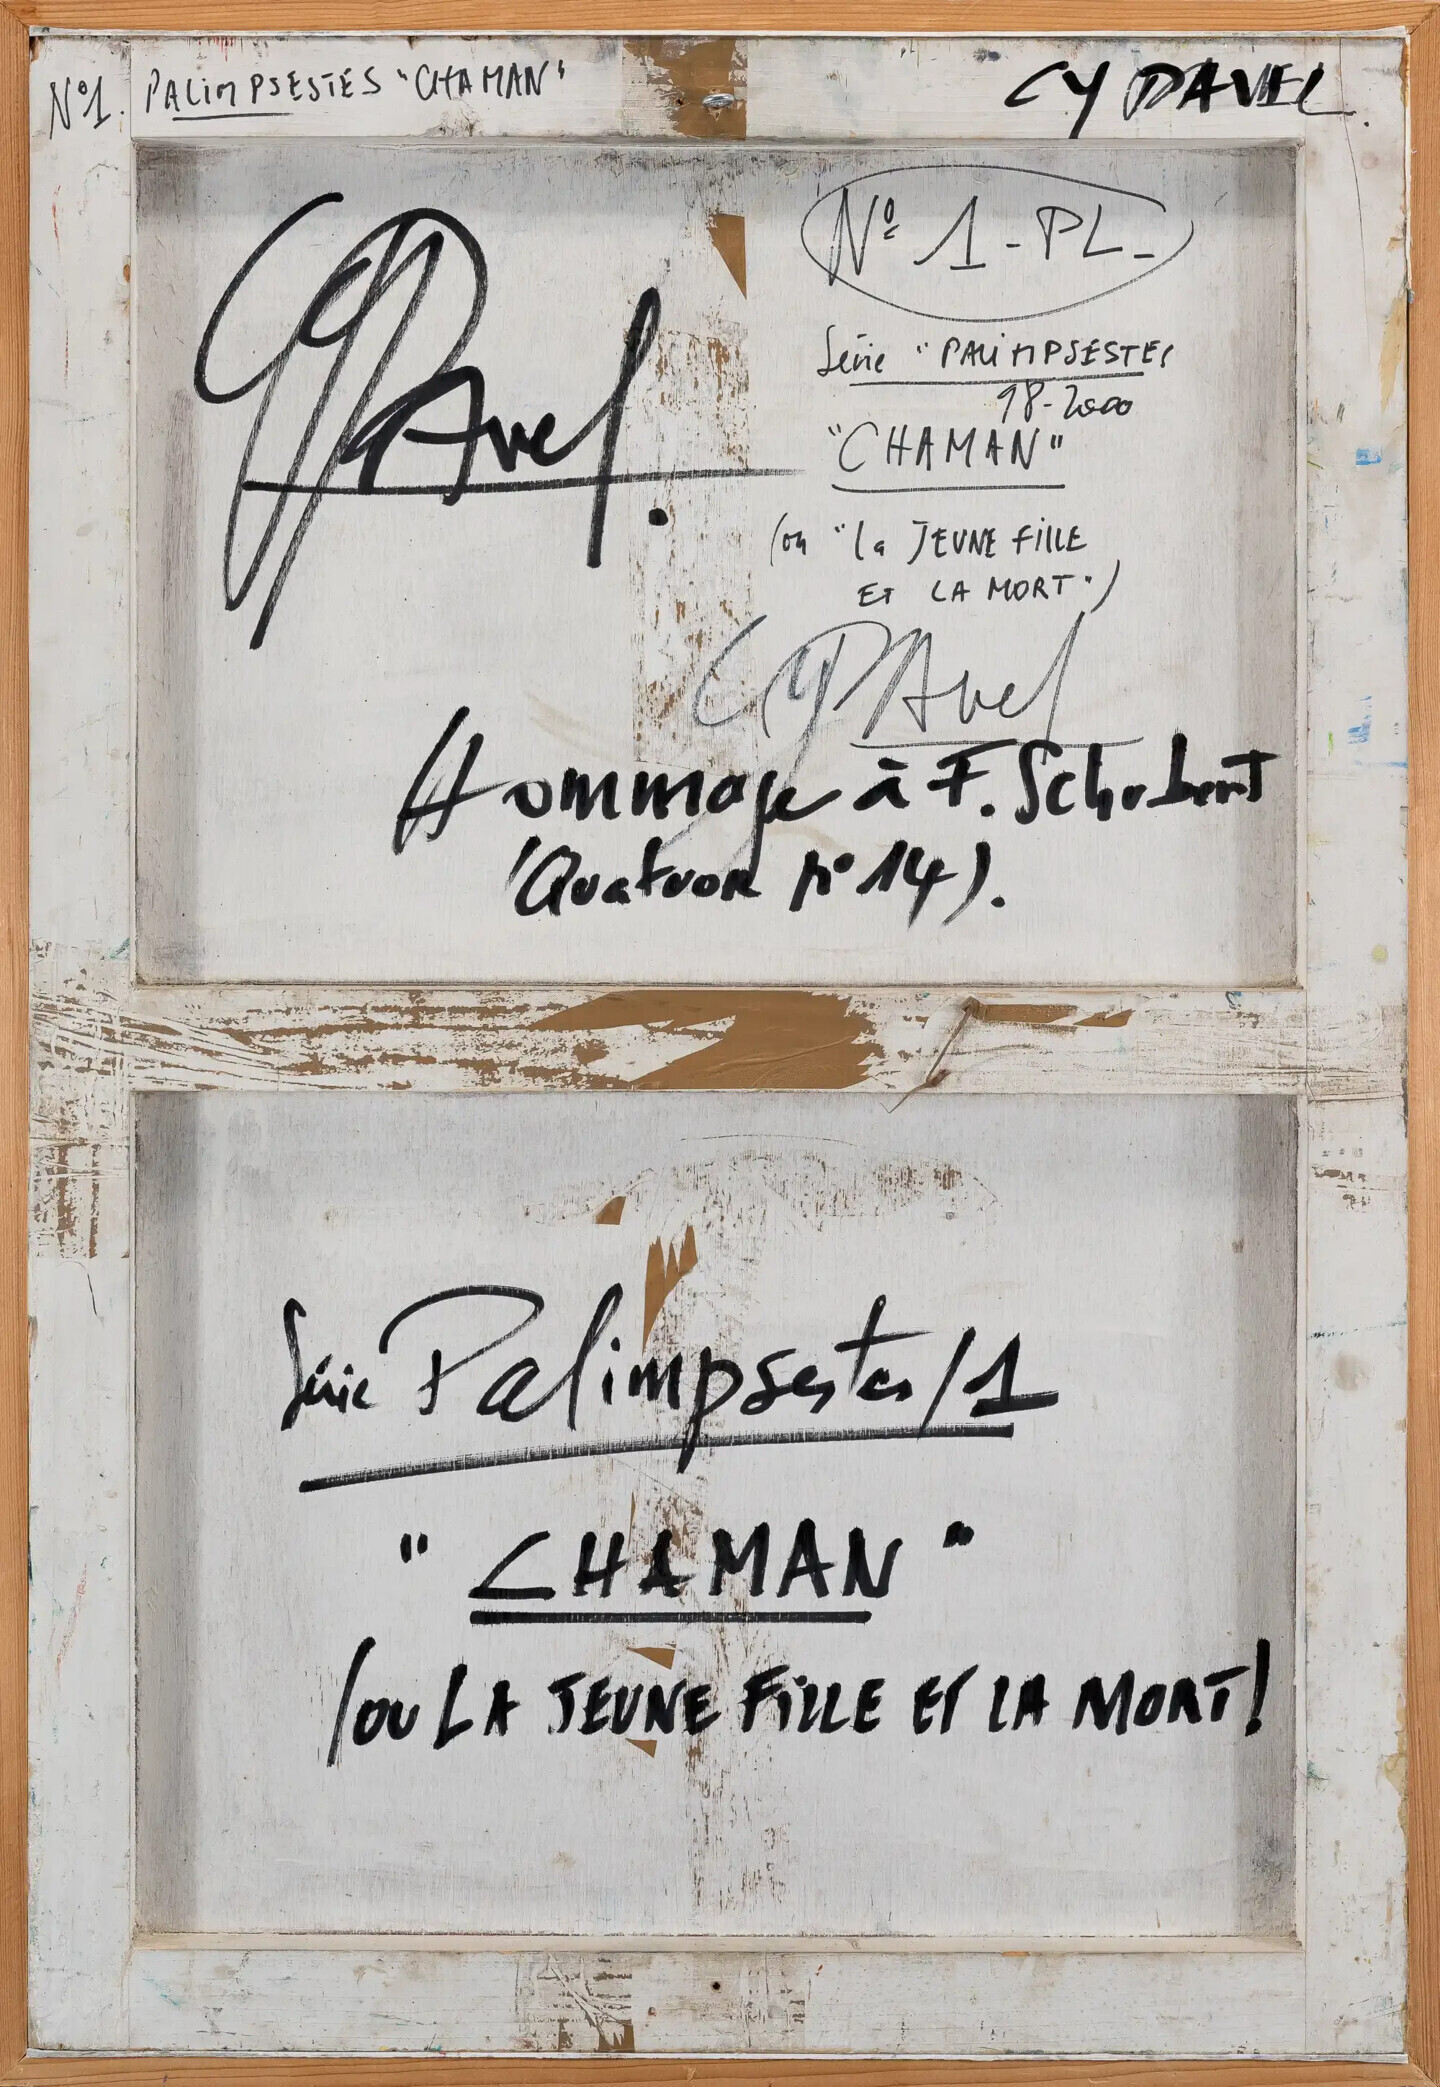 N°1. PALIMPSESTES "CHAMAN"
CY DAVEL.
CYDAvel.
N° 1 - PL -
Série "PALIMPSESTES
98-2000
"CHAMAN"
(ou "la JEUNE FILLE
ET LA MORT")
CYDAvel
Hommage à F. Schubert
(Quatuor n° 14).
Série Palimpsestes/1
"CHAMAN"
(OU LA JEUNE FILLE ET LA MORT!